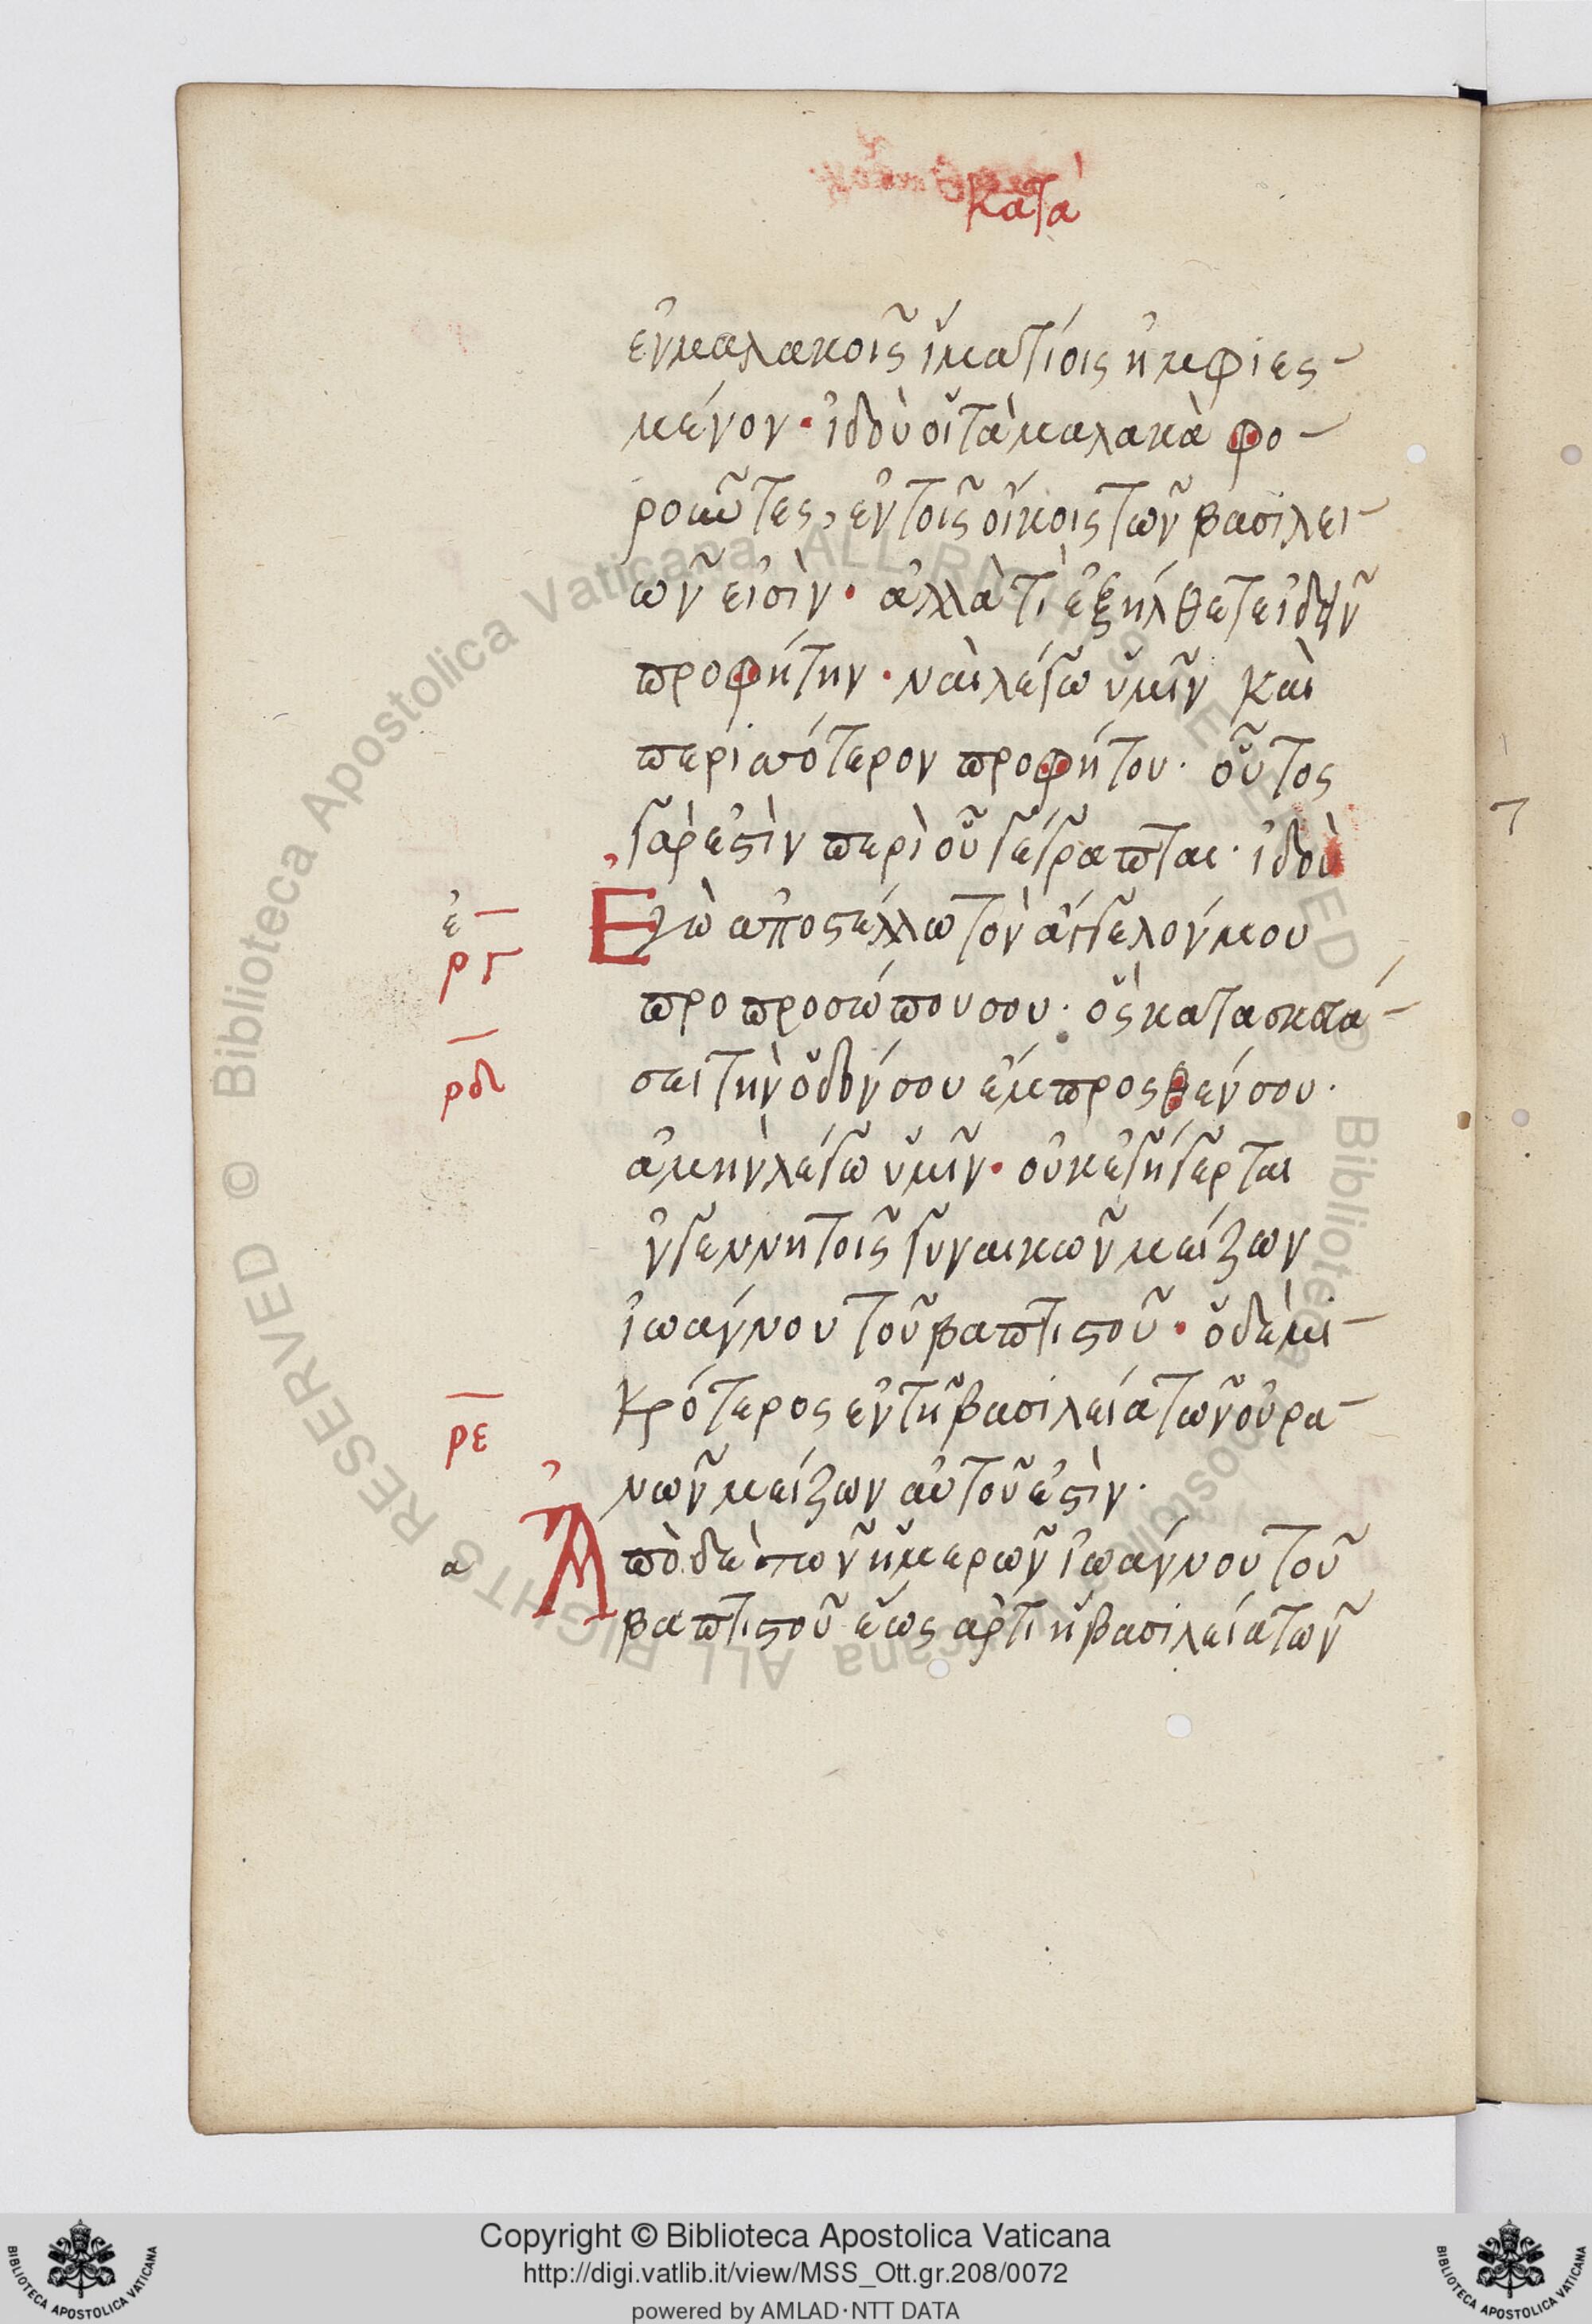 κατὰ
ἐν μαλακοῖς ἱματίοις ἠμφιες
μένον· ἰδοὺ οἱ τὰ μαλακὰ φο
ροῦντες, ἐν τοῖς οἴκοις τῶν βασιλεί
ων εἰσὶν· ἀλλὰ τί ἐξήλθετε ἰδεῖν
προφήτην· ναὶ λέγω ὑμῖν καὶ
περισσότερον προφήτου· οὗτος
γάρ ἐστὶν περὶ οὗ γέγραπται· ἰδοὺ
ἐ
ργ
Ἐγὼ ἀποστέλλω τὸν ἄγγελόν μου
προ προσώπου σου· ὃς κατασκευά
ρδ
σει τὴν ὁδόν σου ἔμπροσθέν σου·
ἀμὴν λέγω ὑμῖν· οὐκ ἐγήγερται
ἐν γεννητοῖς γυναικῶν μείζων
ἰωάννου τοῦ βαπτιστοῦ· ὁ δὲ μι
κρότερος ἐν τῆ βασιλεία τῶν οὐρα
ρε
νῶν μείζων αὐτοῦ ἐστὶν·
α
Ἀπὸ δὲ τῶν ἡμερῶν ἰωάννου τοῦ
βαπτιστοῦ ἕως ἄρτι ἡ βασιλεία τῶν
Copyright © Biblioteca Apostolica Vaticana
http://digi.vatlib.it/view/MSS_Ott.gr.208/0072
powered by AMLAD·NTT DATA
BIBLIOTECA APOSTOLICA VATICANA
BIBLIOTECA APOSTOLICA VATICANA
Biblioteca Apostolica Vaticana ALL RIGHTS RESERVED ©
Biblioteca Apostolica Vaticana ALL RIGHTS RESERVED ©